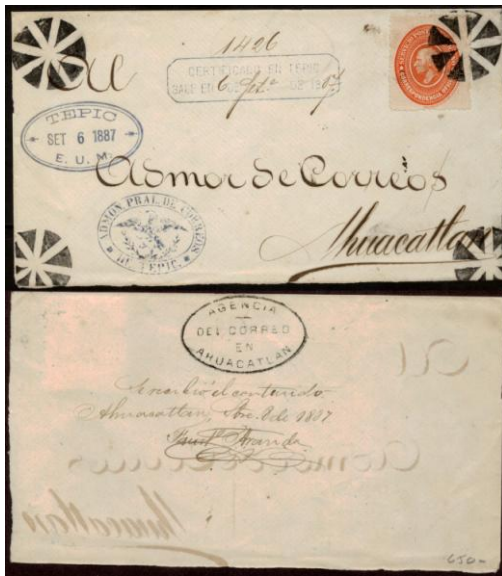 1426
Al
CERTIFICADO EN TEPIC
6
TEPIC
SET 6 1887
E. U. M.
Admor de Correos
Ahuacatlan
ADMON PRAL DE CORREOS
DE TEPIC.
AGENCIA
DEL CORREO
EN
AHUACATLAN
Se recibió el contenido.
Ahuacatlan, de 1887
Aranda
650-